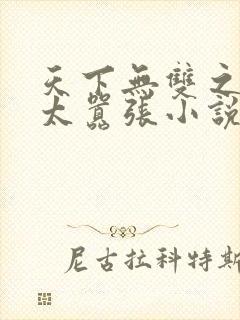 天下無雙之
太囂張小說
尼古拉科特斯